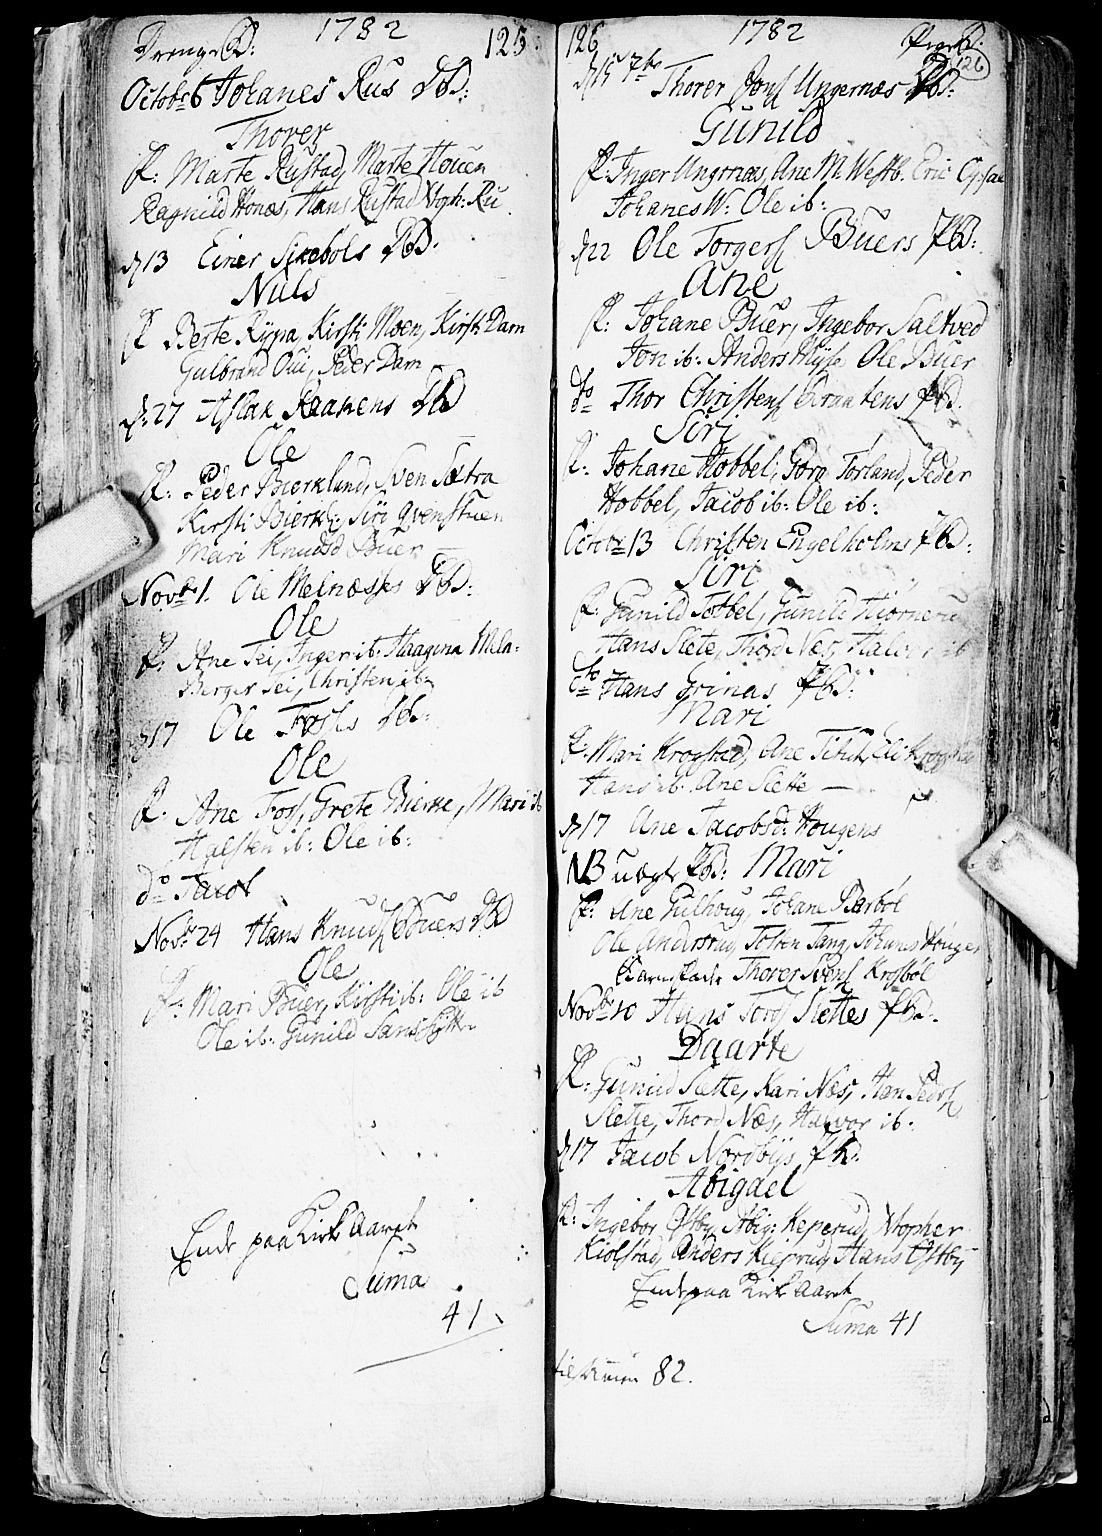 1782
125
Drenge B:
Octobr 6 Johanes Rus DB:
Thorer
F: Marte Rustad, Marte Houen
Ragnild Honæs, Hans Rustad Ru
d 13 Einer Sikebøls DB.
Nils
F Berte Rÿpa, Kirsti Moen, Kirsti Dam
Gulbrand Oui, Peder Dam
d: 27 Aslak Raanens DB
Ole
F: Peder Bierklund, Sven Sætra
Kirsti Bierkl: Siri Qvenstuen
Mari Knudsd Buer
Novbr 1. Ole Melnæsses DB:
Ole
F: Ane Tei, Inger ib: Haagina Meln:
Birger Tei, Christen ib:
d 17 Ole Foss DB:
Ole
F: Ane Foss, Grete Bierke, Mari ib
Halsten ib: Ole ib:
do Jacob
Novbr 24 Hans Knuds Buers DB
Ole
F: Mari Buer, Kirsti ib: Ole ib
Ole ib: Gunild
Ende paa Kirk Aaret
Suma
41
126
1782
Pige B:
126
d 15 7br Thorer Jons Ungernæs PB:
Gunild
F: Inger Ungrnæs, Ane M. Westb. Eric
Johanes W: Ole ib:
d 22 Ole Torgers Buers PB:
Ane
F: Johane Buer, Ingebor Saltved
Jon ib: Anders Ole Buer
do Thor Christens Braatens PB.
Siri
F: Johane Hobbel, Goro Torland, Peder
Hobbel, Jacob ib: Ole ib:
Octobr 13 Christen Engelholms PB:
Siri
F: Gunild Tobbel, Gunild
Hans Slete, Thord Næs, Halvor ib
do Hans Grinas PB:
Mari
F: Mari Krogsted, Ane Eli
Hans ib: Ane Slette
d 17 Ane Jacobsd: Hougens
NB uægt PB: Mari
F: Ane Gulhoug, Johane Barbøl
Ole Andersrud, Tosten Tang, Johans Houger
Barnefader Thorer Svens Krosbøl
Novbr 10 Hans Tors Slettes PB:
Daarte
F: Gunild Slette, Kari Næs, Han Peders
Slette, Thord Næs, Halvor ib.
d 17 Jacob Nordbÿs PB:
Abigael
F: Ingebor Østby, Abig: Keperud, Xtopher
Kiolstad, Anders Kieprud, Hans Østbÿ
Ende paa Kirk Aaret
Suma 41
82.